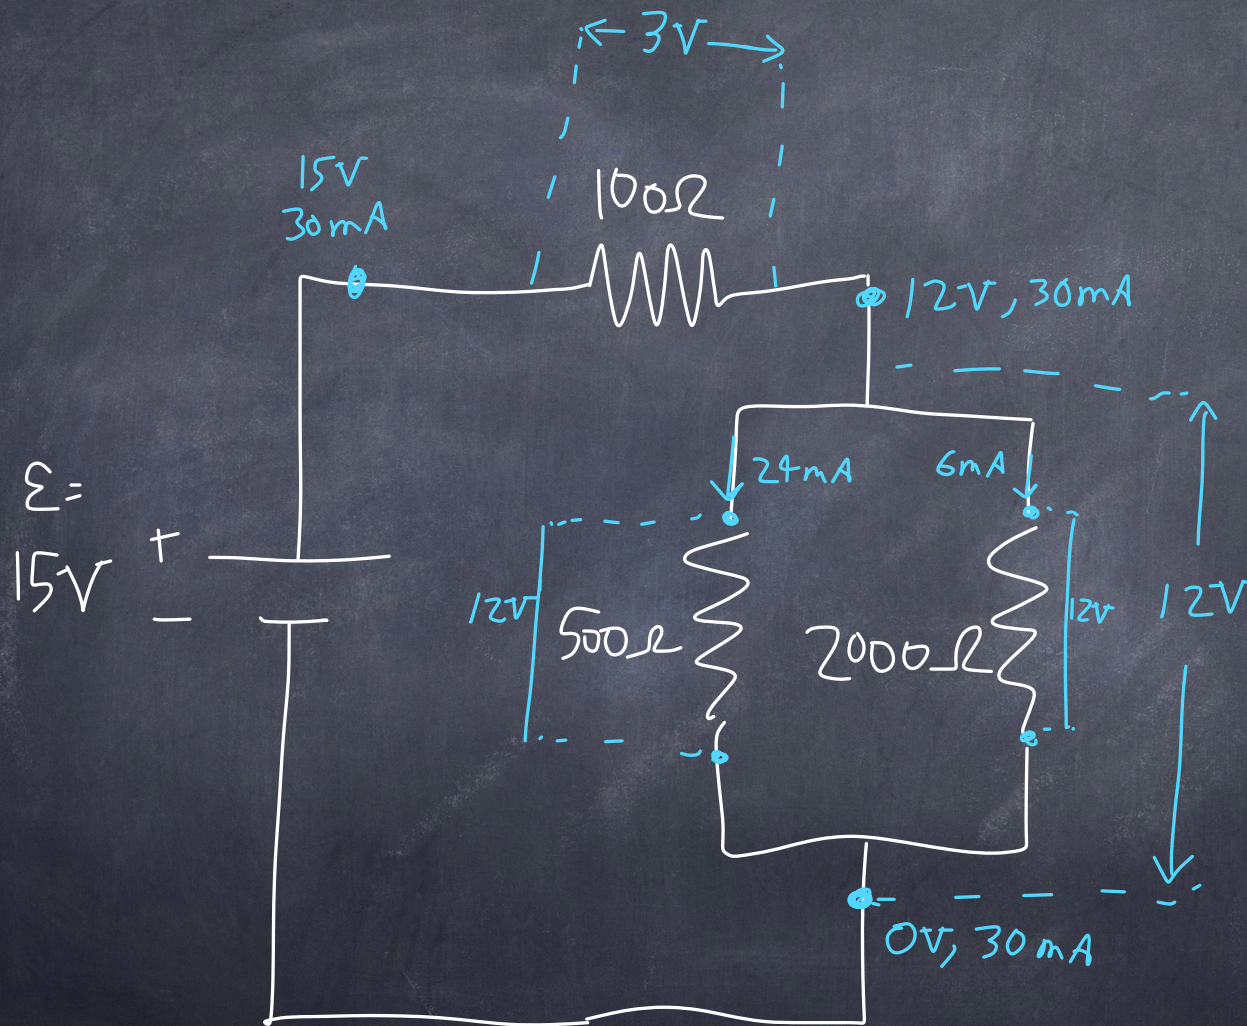 3V
15V
30mA
100Ω
12V, 30mA
24mA
6mA
ε=
15V
+
−
12V
500Ω
2000Ω
12V
12V
0V, 30mA